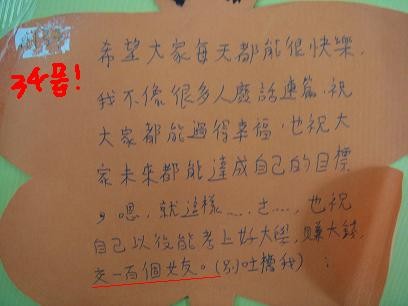 34品!
希望大家每天都能很快樂,
我不像很多人廢話連篇,祝
大家都能過得幸福,也祝大
家未來都能達成自己的目標
,嗯,就這樣……さ…,也祝
自己以後能考上好大學,賺大錢,
交一百個女友。(別吐槽我):